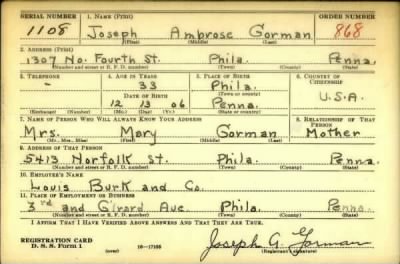 SERIAL NUMBER 1. NAME (Print) ORDER NUMBER
1108 Joseph Ambrose Gorman 868
(First) (Middle) (Last)
2. ADDRESS (Print)
1307 No. Fourth St. Phila. Penna.
(Number and street or R. F. D. number) (Town) (County) (State)
3. TELEPHONE 4. AGE IN YEARS 5. PLACE OF BIRTH 6. COUNTRY OF CITIZENSHIP
- 33 Phila.
(Town or county)
DATE OF BIRTH
12 13 06 Penna. U.S.A.
(Exchange) (Number) (Mo.) (Day) (Yr.) (State or country)
7. NAME OF PERSON WHO WILL ALWAYS KNOW YOUR ADDRESS 8. RELATIONSHIP OF THAT PERSON
Mrs. Mary Gorman Mother
(Mr., Mrs., Miss) (First) (Middle) (Last)
9. ADDRESS OF THAT PERSON
5413 Norfolk St. Phila. Penna.
(Number and street or R. F. D. number) (Town) (County) (State)
10. EMPLOYER'S NAME
Louis Burk and Co.
11. PLACE OF EMPLOYMENT OR BUSINESS
3rd and Girard Ave Phila. Penna.
(Number and street or R. F. D. number) (Town) (County) (State)
I AFFIRM THAT I HAVE VERIFIED ABOVE ANSWERS AND THAT THEY ARE TRUE.
REGISTRATION CARD
D. S. S. Form 1 (over) 16—17105 Joseph A. Gorman
(Registrant's signature)